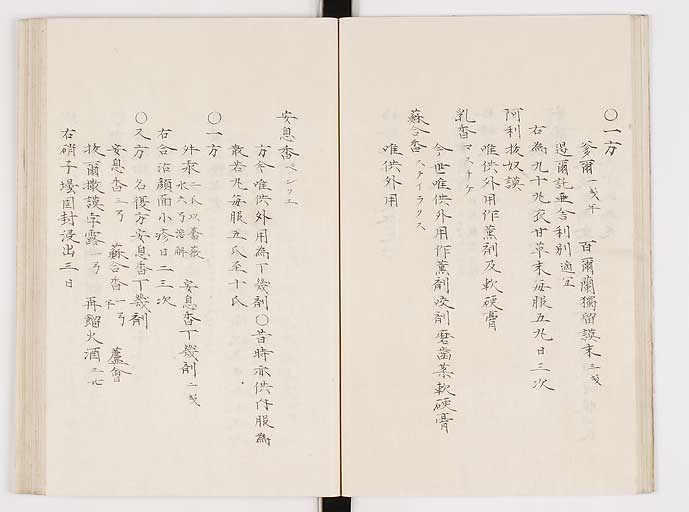 〇一方
爹爾一戔半 百爾蘭獨留謨末三戔
遏爾託亜舎利別適宜
右為丸十丸衣甘草末毎服五丸日三次
阿利抜奴謨
唯供外用作薫剤及軟硬膏
乳香マスチケ
今世唯供外用作薫剤咬剤磨歯薬軟硬膏
蘇合香スチイラクス
唯供外用
安息香ベンソエ
方今唯供外用為丁幾剤〇昔時亦供内服為
散若丸毎服五氏至十氏
〇一方
升汞一氏以薔薇水六弓溶解 安息香丁幾剤二戔
右合治顔面小疹日二三次
〇又方 名復方安息香丁幾剤
安息香三弓 蘇合香一弓半 蘆會
抜爾撒謨孛露一弓 再餾火酒三七
右硝子壜固封浸出三日